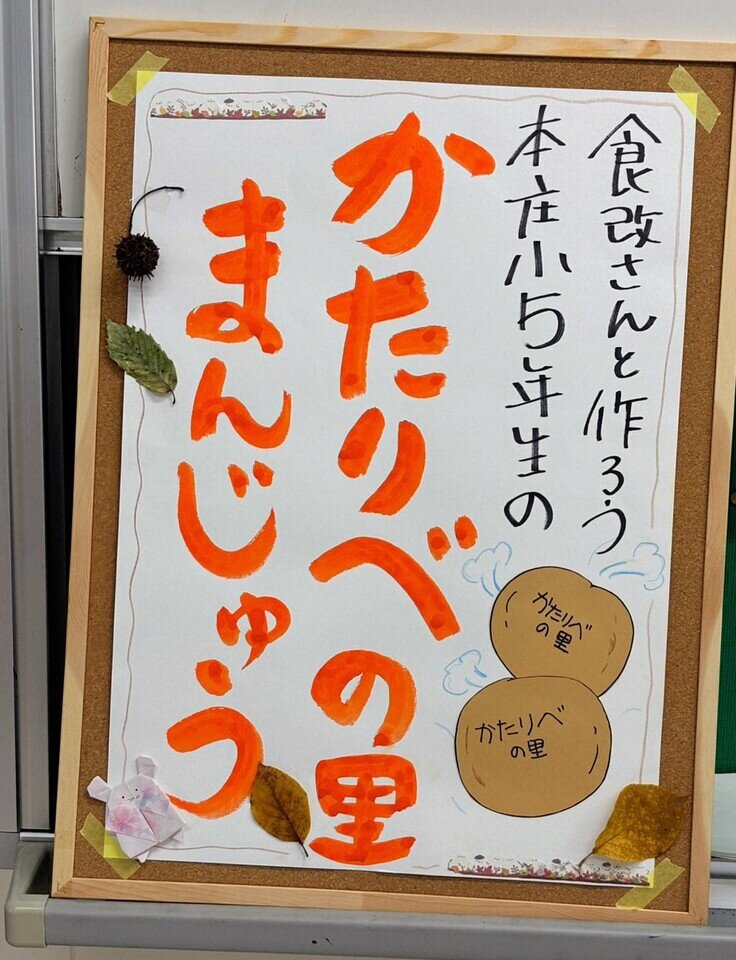 食改さんと作ろう
本庄小5年生の
かたりべの里
まんじゅう
かたりべ
の里
かたりべ
の里